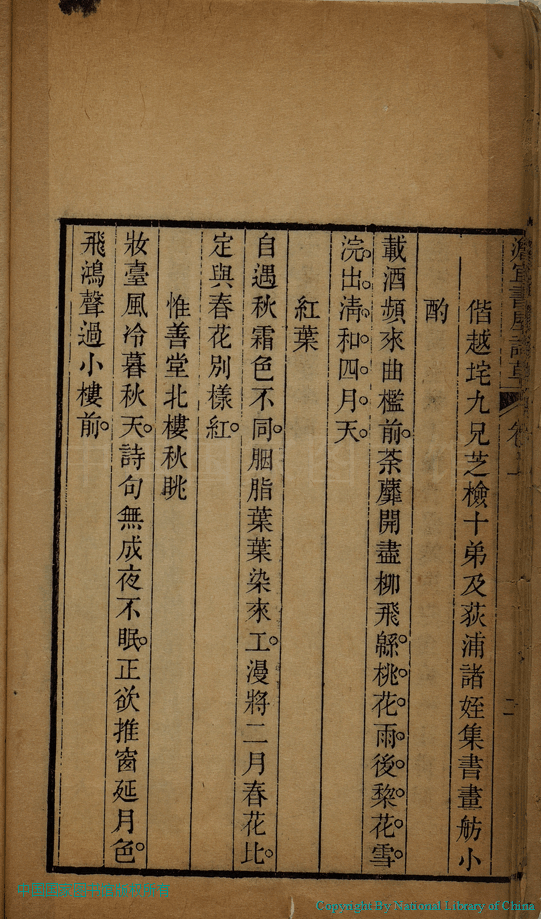 偕越垞九兄芝檢十弟及荻浦諸姪集書畫舫小
酌
載酒頻來曲檻前。荼蘼開盡柳飛緜。桃花雨後棃花雪。
浣出清和四月天。
紅葉
自遇秋霜色不同。胭脂葉葉染來工。漫將二月春花比。
定與春花別樣紅。
惟善堂北樓秋眺
妝臺風冷暮秋天。詩句無成夜不眠。正欲推窗延月色。
飛鴻聲過小樓前。
書屋詩草 卷
Copyright by National Library of China